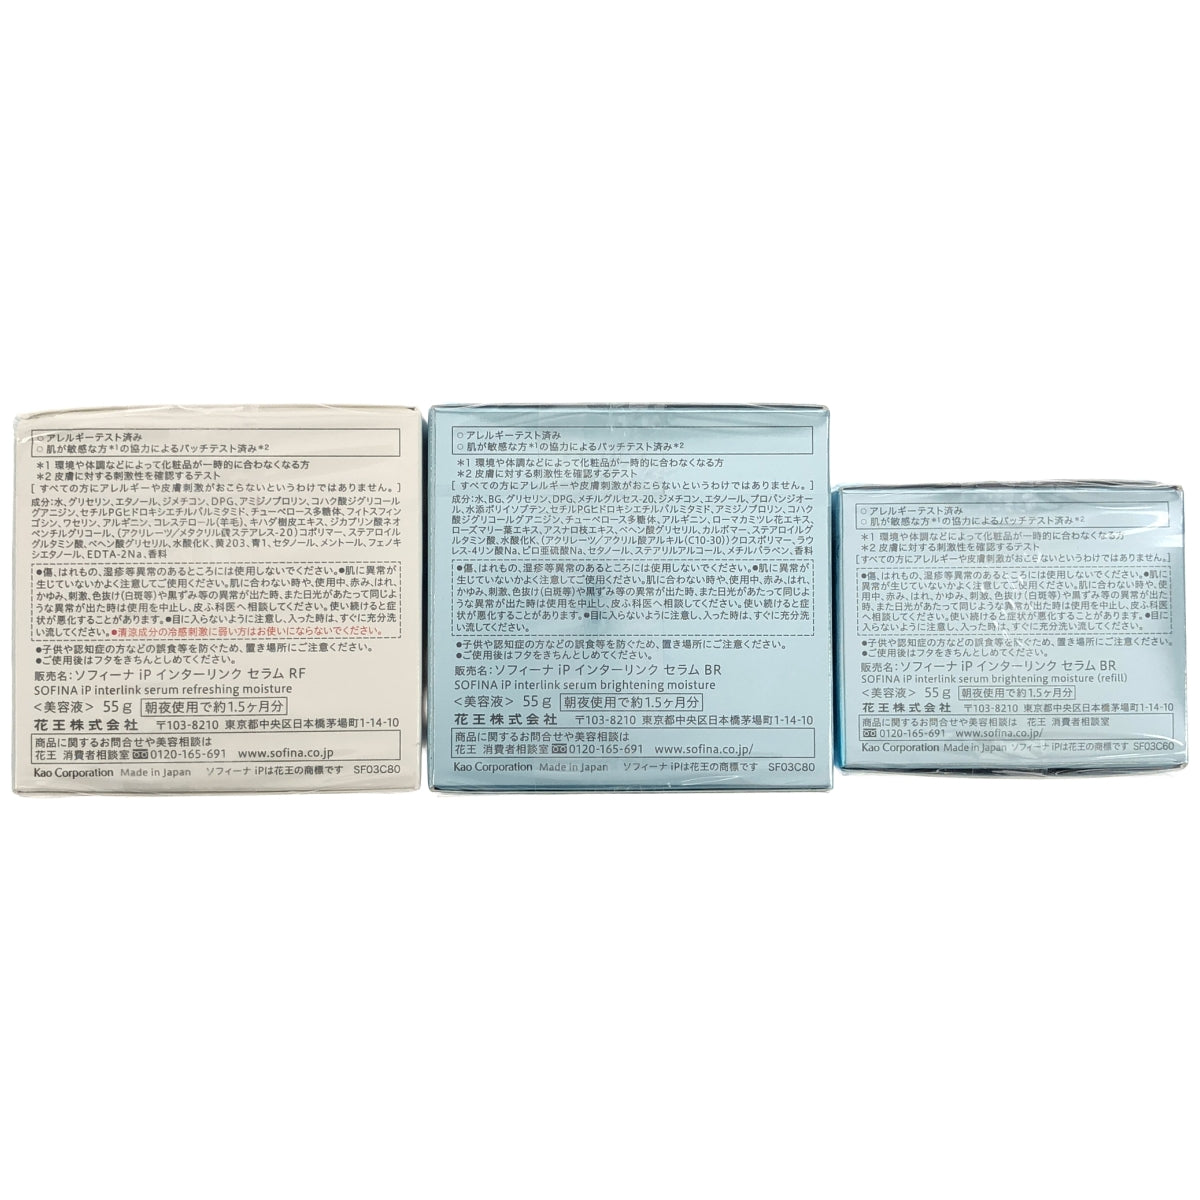 ○アレルギーテスト済み
○肌が敏感な方*1の協力によるパッチテスト済み*2
*1 環境や体調などによって化粧品が一時的に合わなくなる方
*2 皮膚に対する刺激性を確認するテスト
[すべての方にアレルギーや皮膚刺激がおこらないというわけではありません。]
成分:水、グリセリン、エタノール、ジメチコン、DPG、アミジノプロリン、コハク酸ジグリコール
グアニジン、セチルPGヒドロキシエチルパルミタミド、チューベロース多糖体、フィトスフィン
ゴシン、ワセリン、アルギニン、コレステロール(羊毛)、キハダ樹皮エキス、ジカプリン酸ネオ
ペンチルグリコール、(アクリレーツ/メタクリル酸ステアレス-20)コポリマー、ステアロイル
グルタミン酸、ベヘン酸グリセリル、水酸化K、黄203、青1、セタノール、メントール、フェノキ
シエタノール、EDTA-2Na、香料
●傷、はれもの、湿疹等異常のあるところには使用しないでください。●肌に異常が
生じていないかよく注意してご使用ください。肌に合わない時や、使用中、赤み、はれ、
かゆみ、刺激、色抜け(白斑等)や黒ずみ等の異常が出た時、また日光があたって同じよ
うな異常が出た時は使用を中止し、皮ふ科医へ相談してください。使い続けると症
状が悪化することがあります。●目に入らないように注意し、入った時は、すぐに充分洗
い流してください。●清涼成分の冷感刺激に弱い方はお使いにならないでください。
●子供や認知症の方などの誤食等を防ぐため、置き場所にご注意ください。
●ご使用後はフタをきちんとしめてください。
販売名:ソフィーナ iP インターリンク セラム RF
SOFINA iP interlink serum refreshing moisture
＜美容液＞ 55g 朝夜使用で約1.5ヶ月分
花王株式会社 〒103-8210 東京都中央区日本橋茅場町1-14-10
商品に関するお問合せや美容相談は
花王 消費者相談室 0120-165-691 www.sofina.co.jp
Kao Corporation Made in Japan ソフィーナ iPは花王の商標です SF03C80
○アレルギーテスト済み
○肌が敏感な方*1の協力によるパッチテスト済み*2
*1 環境や体調などによって化粧品が一時的に合わなくなる方
*2 皮膚に対する刺激性を確認するテスト
[すべての方にアレルギーや皮膚刺激がおこらないというわけではありません。]
成分:水、BG、グリセリン、DPG、メチルグルセス-20、ジメチコン、エタノール、プロパンジオー
ル、水添ポリイソブテン、セチルPGヒドロキシエチルパルミタミド、アミジノプロリン、コハク
酸ジグリコールグアニジン、チューベロース多糖体、アルギニン、ローマカミツレ花エキス、
ローズマリー葉エキス、アスナロ枝エキス、ベヘン酸グリセリル、カルボマー、ステアロイルグ
ルタミン酸、水酸化K、(アクリレーツ/アクリル酸アルキル(C10-30))クロスポリマー、ラウ
レス-4リン酸Na、ピロ亜硫酸Na、セタノール、ステアリルアルコール、メチルパラベン、香料
●傷、はれもの、湿疹等異常のあるところには使用しないでください。●肌に異常が
生じていないかよく注意してご使用ください。肌に合わない時や、使用中、赤み、はれ、
かゆみ、刺激、色抜け(白斑等)や黒ずみ等の異常が出た時、また日光があたって同じよ
うな異常が出た時は使用を中止し、皮ふ科医へ相談してください。使い続けると症
状が悪化することがあります。●目に入らないように注意し、入った時は、すぐに充分洗
い流してください。
●子供や認知症の方などの誤食等を防ぐため、置き場所にご注意ください。
●ご使用後はフタをきちんとしめてください。
販売名:ソフィーナ iP インターリンク セラム BR
SOFINA iP interlink serum brightening moisture
＜美容液＞ 55g 朝夜使用で約1.5ヶ月分
花王株式会社 〒103-8210 東京都中央区日本橋茅場町1-14-10
商品に関するお問合せや美容相談は
花王 消費者相談室 0120-165-691 www.sofina.co.jp/
Kao Corporation Made in Japan ソフィーナ iPは花王の商標です SF03C80
○アレルギーテスト済み
○肌が敏感な方*1の協力によるパッチテスト済み*2
*1 環境や体調などによって化粧品が一時的に合わなくなる方
*2 皮膚に対する刺激性を確認するテスト
[すべての方にアレルギーや皮膚刺激がおこらないというわけではありません。]
●傷、はれもの、湿疹等異常のあるところには使用しないでください。●肌に
異常が生じていないかよく注意してご使用ください。肌に合わない時や、使
用中、赤み、はれ、かゆみ、刺激、色抜け(白斑等)や黒ずみ等の異常が出た
時、また日光があたって同じような異常が出た時は使用を中止し、皮ふ科医
へ相談してください。使い続けると症状が悪化することがあります。●目に
入らないように注意し、入った時は、すぐに充分洗い流してください。
●子供や認知症の方などの誤食等を防ぐため、置き場所にご注意ください。
●ご使用後はフタをきちんとしめてください。
販売名:ソフィーナ iP インターリンク セラム BR
SOFINA iP interlink serum brightening moisture (refill)
＜美容液＞ 55g 朝夜使用で約1.5ヶ月分
花王株式会社 〒103-8210 東京都中央区日本橋茅場町1-14-10
商品に関するお問合せや美容相談は 花王 消費者相談室
0120-165-691 www.sofina.co.jp/
Kao Corporation Made in Japan ソフィーナ iPは花王の商標です SF03C60